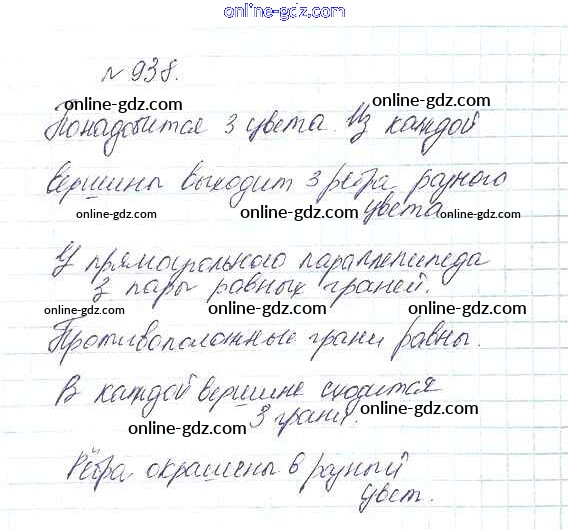 online-gdz.com
№ 938.
online-gdz.com online-gdz.com
Понадобится 3 цвета. Из каждой
вершины выходит 3 ребра разного
online-gdz.com online-gdz.com цвета online-gdz.com
У прямоугольного параллелепипеда
3 пары равных граней.
online-gdz.com online-gdz.com online-gdz.com
Противоположные грани равны.
В каждой вершине сходится
online-gdz.com 3 грани. online-gdz.com
Рёбра окрашены в разный
цвет.
online-gdz.com online-gdz.com